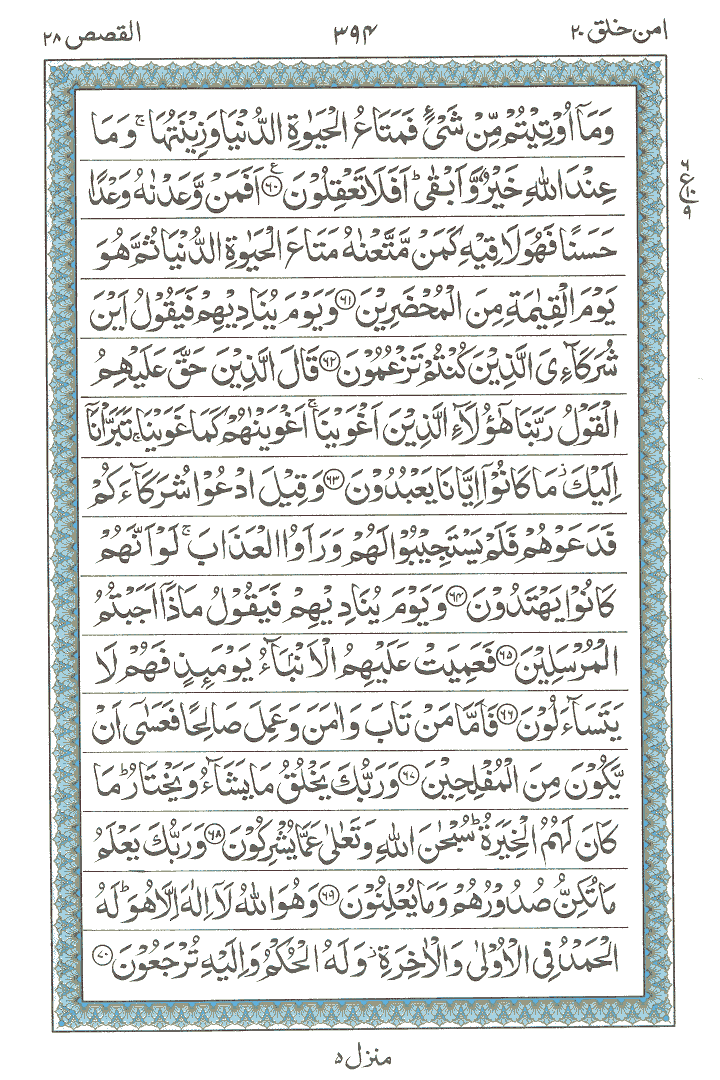 امن خلق ۲۰ ۳۹۴ القصص ۲۸
وَمَاۤ اُوْتِیْتُمْ مِّنْ شَیْءٍ فَمَتَاعُ الْحَیٰوةِ الدُّنْیَا وَزِیْنَتُهَا ۚ وَمَا
عِنْدَ اللّٰهِ خَیْرٌ وَّاَبْقٰی ؕ اَفَلَا تَعْقِلُوْنَ ﴿۶۰﴾ ع اَفَمَنْ وَّعَدْنٰهُ وَعْدًا
حَسَنًا فَهُوَ لَاقِیْهِ كَمَنْ مَّتَّعْنٰهُ مَتَاعَ الْحَیٰوةِ الدُّنْیَا ثُمَّ هُوَ
یَوْمَ الْقِیٰمَةِ مِنَ الْمُحْضَرِیْنَ ﴿۶۱﴾ وَیَوْمَ یُنَادِیْهِمْ فَیَقُوْلُ اَیْنَ
شُرَكَآءِیَ الَّذِیْنَ كُنْتُمْ تَزْعُمُوْنَ ﴿۶۲﴾ قَالَ الَّذِیْنَ حَقَّ عَلَیْهِمُ
الْقَوْلُ رَبَّنَا هٰۤؤُلَآءِ الَّذِیْنَ اَغْوَیْنَا ۚ اَغْوَیْنٰهُمْ كَمَا غَوَیْنَا ۚ تَبَرَّاْنَاۤ
اِلَیْكَ ؗ مَا كَانُوْۤا اِیَّانَا یَعْبُدُوْنَ ﴿۶۳﴾ وَقِیْلَ ادْعُوْا شُرَكَآءَكُمْ
فَدَعَوْهُمْ فَلَمْ یَسْتَجِیْبُوْا لَهُمْ وَرَاَوُا الْعَذَابَ ۚ لَوْ اَنَّهُمْ
كَانُوْا یَهْتَدُوْنَ ﴿۶۴﴾ وَیَوْمَ یُنَادِیْهِمْ فَیَقُوْلُ مَاذَاۤ اَجَبْتُمُ
الْمُرْسَلِیْنَ ﴿۶۵﴾ فَعَمِیَتْ عَلَیْهِمُ الْاَنْۢبَآءُ یَوْمَئِذٍ فَهُمْ لَا
یَتَسَآءَلُوْنَ ﴿۶۶﴾ فَاَمَّا مَنْ تَابَ وَاٰمَنَ وَعَمِلَ صَالِحًا فَعَسٰۤی اَنْ
یَّكُوْنَ مِنَ الْمُفْلِحِیْنَ ﴿۶۷﴾ وَرَبُّكَ یَخْلُقُ مَا یَشَآءُ وَیَخْتَارُ ؕ مَا
كَانَ لَهُمُ الْخِیَرَةُ ؕ سُبْحٰنَ اللّٰهِ وَتَعٰلٰی عَمَّا یُشْرِكُوْنَ ﴿۶۸﴾ وَرَبُّكَ یَعْلَمُ
مَا تُكِنُّ صُدُوْرُهُمْ وَمَا یُعْلِنُوْنَ ﴿۶۹﴾ وَهُوَ اللّٰهُ لَاۤ اِلٰهَ اِلَّا هُوَ ؕ لَهُ
الْحَمْدُ فِی الْاُوْلٰی وَالْاٰخِرَةِ ؗ وَلَهُ الْحُكْمُ وَاِلَیْهِ تُرْجَعُوْنَ ﴿۷۰﴾
۶
ع۱۰
۹
منزل ۵